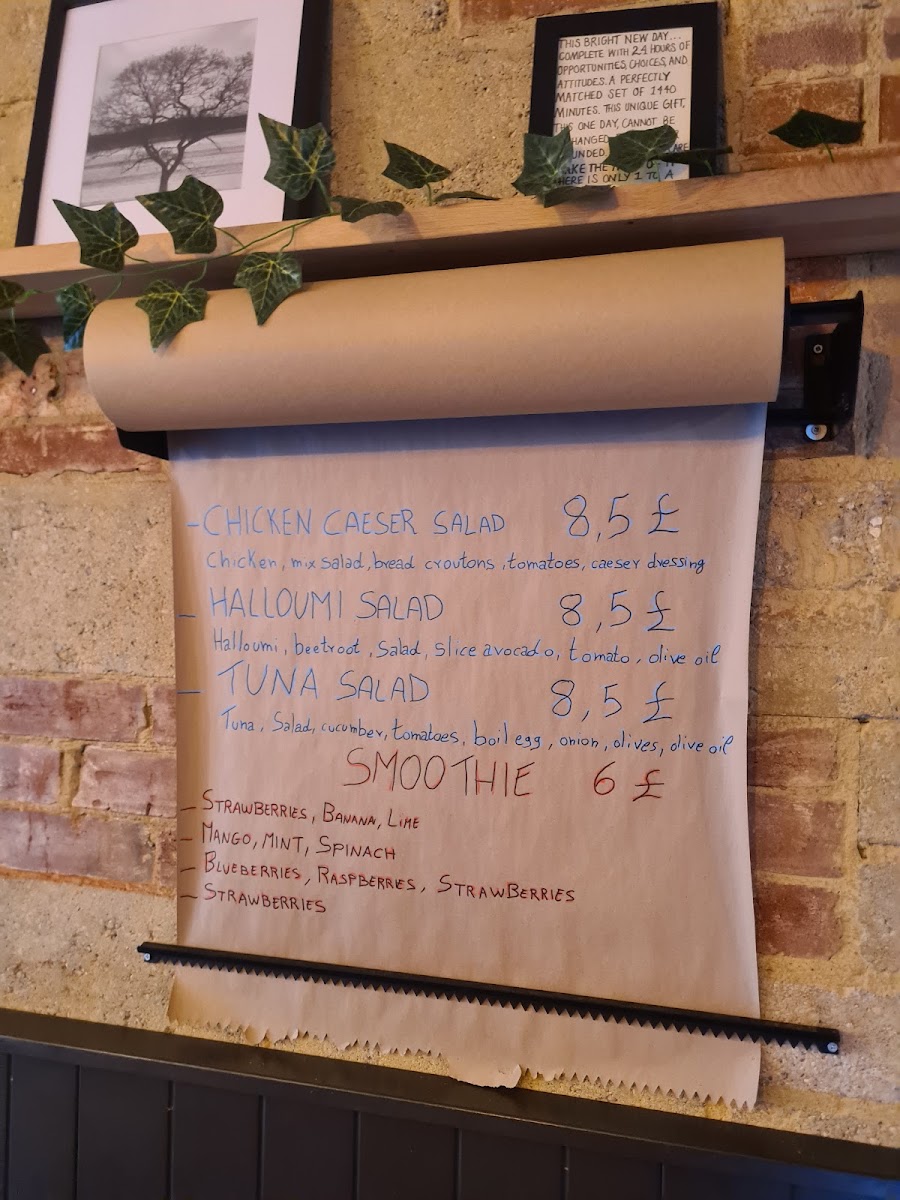 THIS BRIGHT NEW DAY...
COMPLETE WITH 24 HOURS OF
OPPORTUNITIES, CHOICES, AND
ATTITUDES. A PERFECTLY
MATCHED SET OF 1440
MINUTES. THIS UNIQUE GIFT,
THIS ONE DAY, CANNOT BE
THE
HERE IS ONLY 1 TO A
-CHICKEN CAESER SALAD 8,5 £
Chicken, mix salad, bread croutons, tomatoes, caeser dressing
- HALLOUMI SALAD 8,5 £
Halloumi, beetroot, Salad, slice avocado, tomato, olive oil
- TUNA SALAD 8,5 £
Tuna, Salad, cucumber, tomatoes, boil egg, onion, olives, olive oil
SMOOTHIE 6 £
- STRAWBERRIES, BANANA, LIME
- MANGO, MINT, SPINACH
- BLUEBERRIES, RASPBERRIES, STRAWBERRIES
- STRAWBERRIES